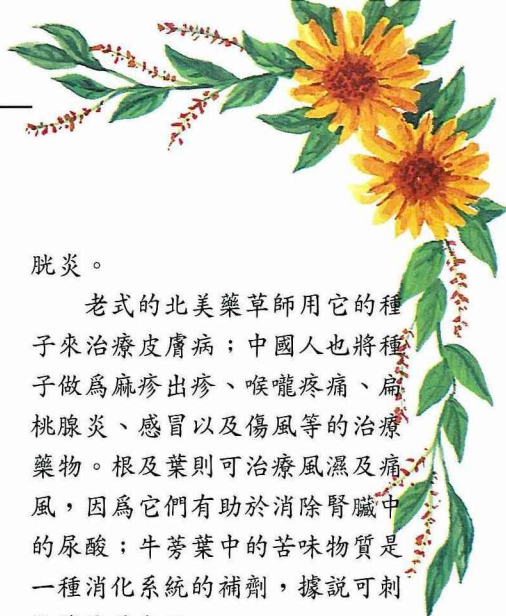 胱炎。
老式的北美藥草師用它的種
子來治療皮膚病；中國人也將種
子做爲麻疹出疹、喉嚨疼痛、扁
桃腺炎、感冒以及傷風等的治療
藥物。根及葉則可治療風濕及痛
風，因爲它們有助於消除腎臟中
的尿酸；牛蒡葉中的苦味物質是
一種消化系統的補劑，據說可刺